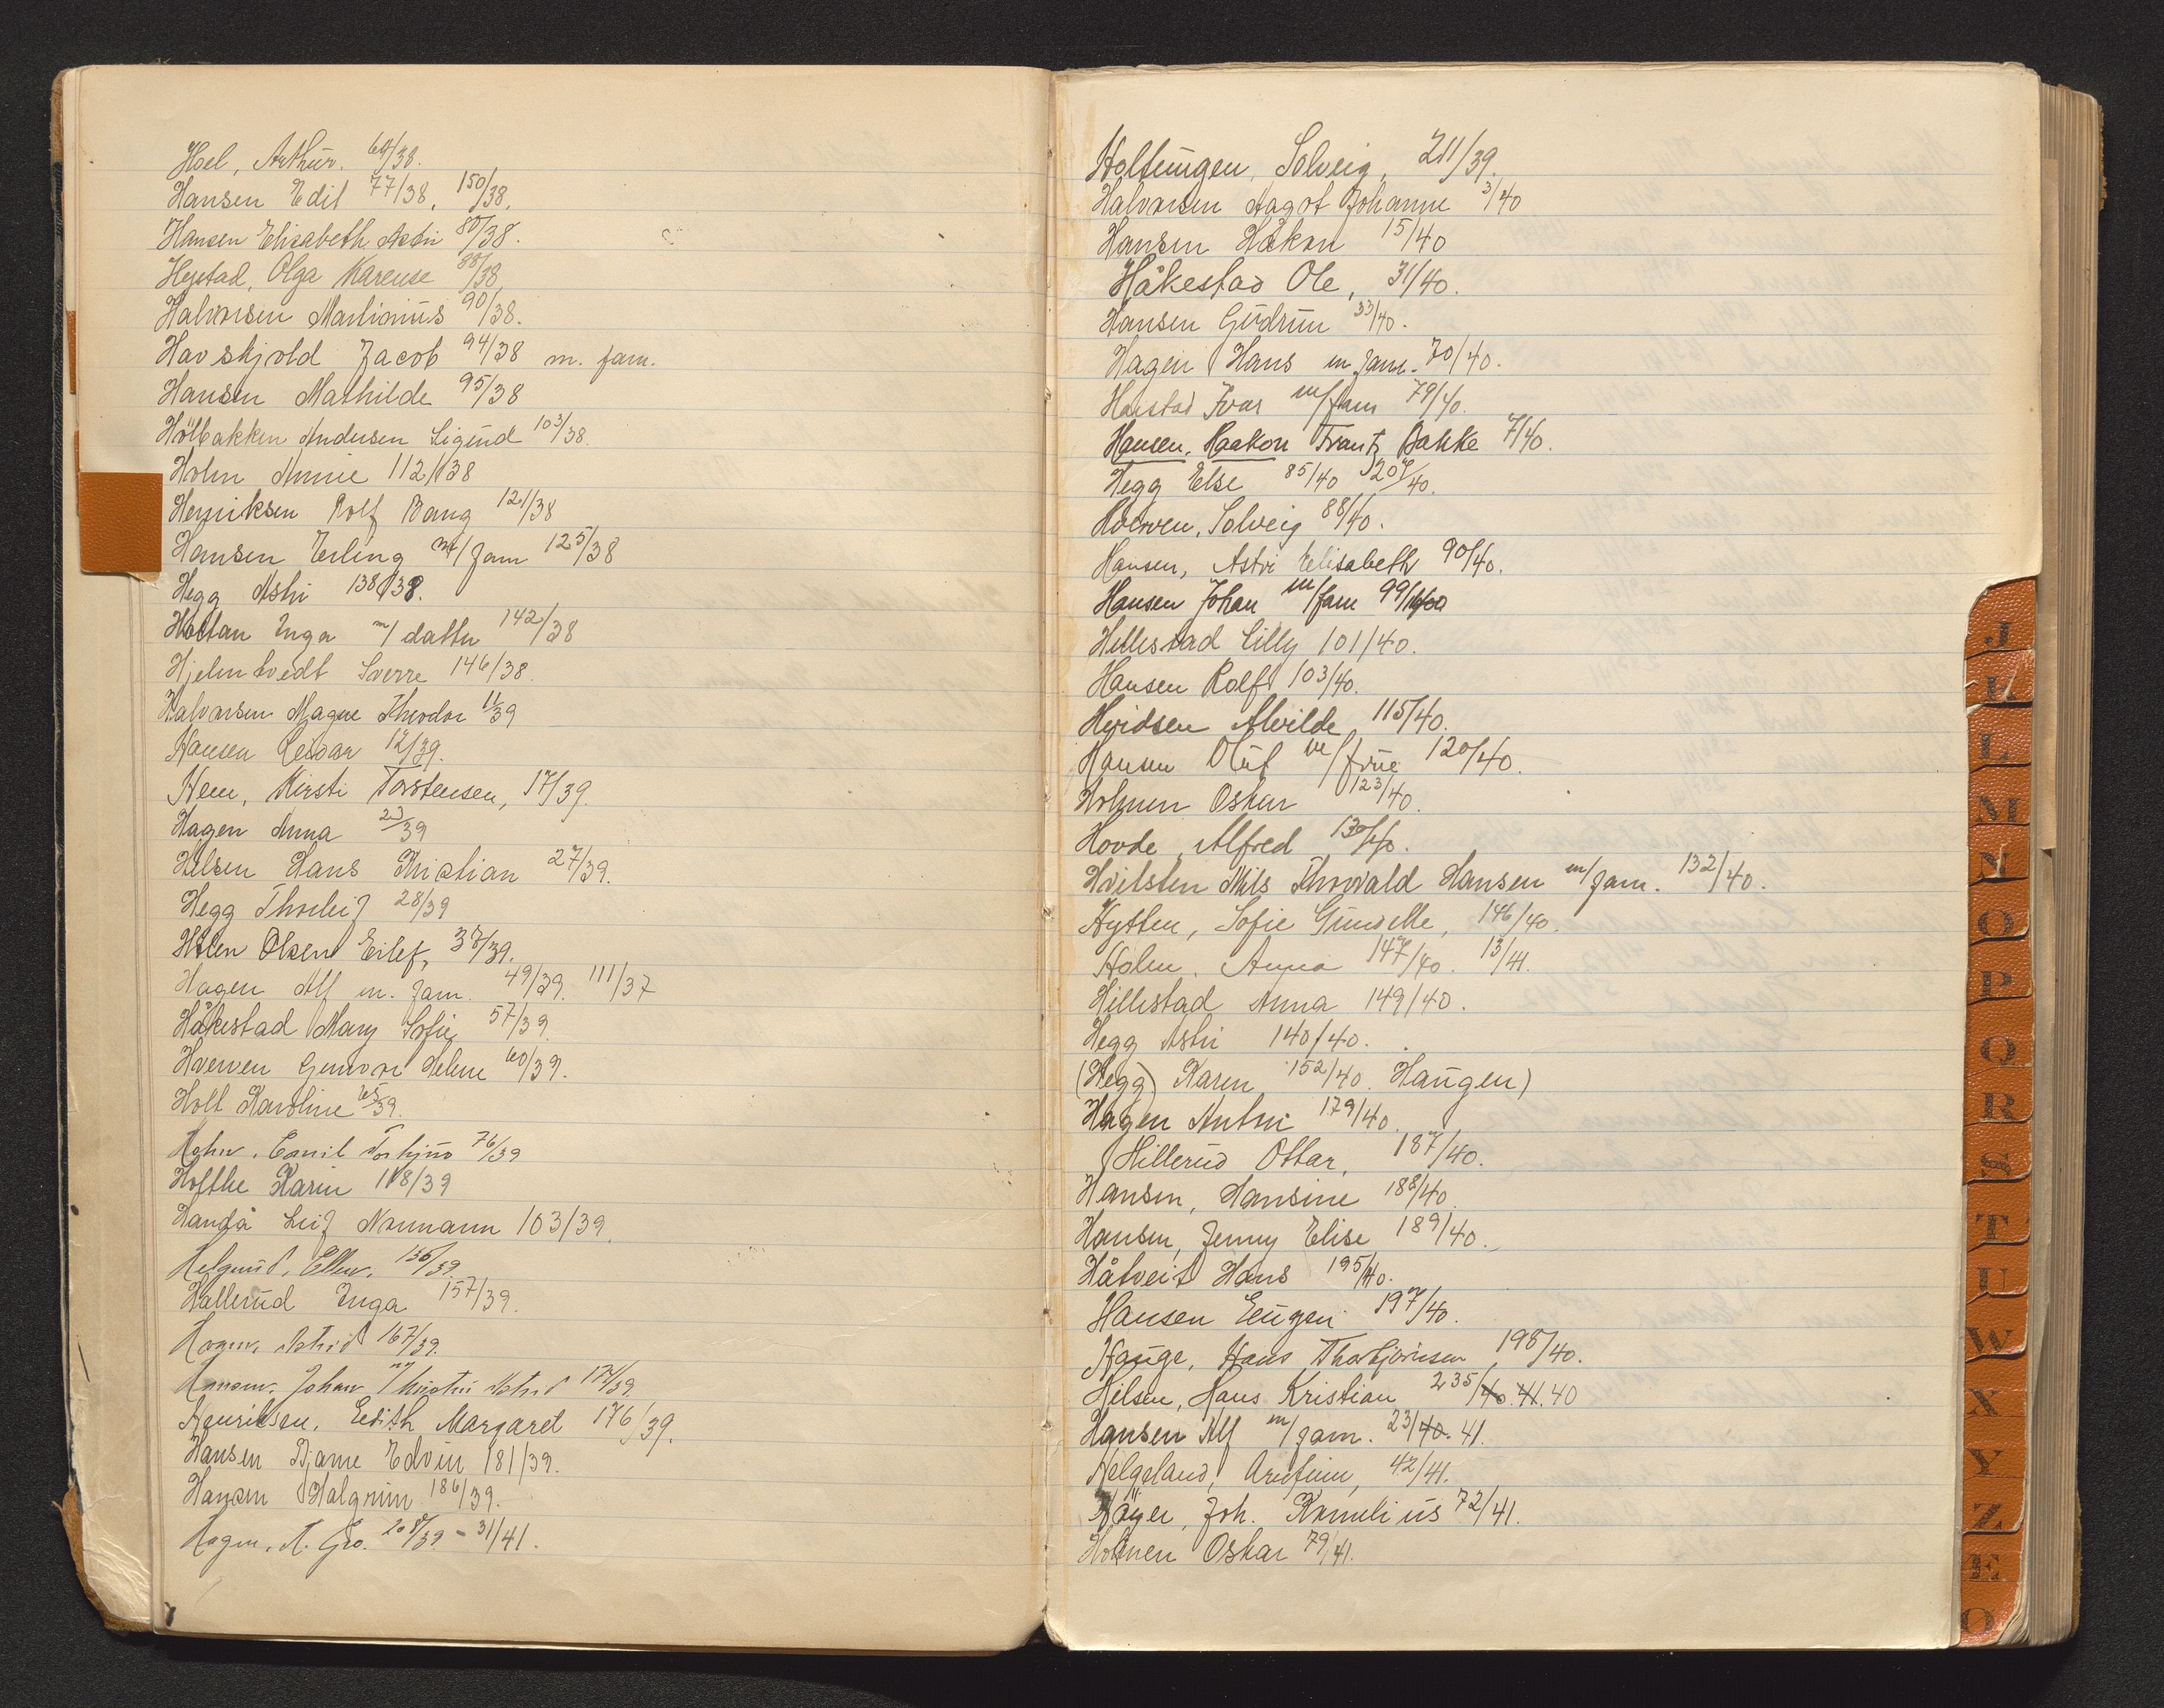 Hoel, Arthur. 64/38.
Hansen Edil 77/38, 150/38.
Hansen Elisabeth Astri 80/38.
Heystad, Olga Karense 88/38
Halvorsen Martinius 90/38.
Havskjold Jacob 94/38 m. fam.
Hansen Mathilde 95/38
Hölbakken Andersen Sigurd 103/38.
Holm Annie 112/38
Henriksen Rolf Bang 121/38
Hansen Erling m/fam 125/38
Hegg Astri 138/38.
Holtan Inga m/datter 142/38
Hjelmtvedt Sverre 146/38.
Halvorsen Magne Theodor 11/39
Hansen Reidar 12/39.
Hem, Kirsti Torstensen, 17/39.
Hagen Anna 23/39
Hilsen Hans Kristian 27/39.
Hegg Thorleif 28/39
Holen Olsen Eilef, 38/39.
Hagen Alf m. fam. 49/39. 111/37
Håkestad Mary Sofie 57/39.
Hverven Gunvor Helene 60/39.
Holt Karoline 65/39.
Hohn. Emil 76/39
Hofthe Karin 118/39
Handå Leif Normann 103/39.
Helgerud, Ellen. 136/39.
Hallerud Inga 157/39.
Hagen, Astrid 167/39.
Hansen. Johan m/hustru Astrid 174/39.
Henriksen. Edith Margaret 176/39.
Hansen Bjarne Edvin 181/39.
Hansen Halgrim 186/39.
Hagen. A. Gro. 208/39 - 31/41.
Holtungen, Solveig, 211/39.
Halvorsen Aagot Johanne 3/40
Hansen Håkon 15/40
Håkestad Ole, 31/40.
Hansen Gudrun 33/40.
Hagen Hans m. fam. 70/40.
Harstad Ivar m/fam 79/40.
Hansen, Haakon Frantz Bakke 7/40.
Hegg Else 85/40 207/40.
Hverven, Solveig 88/40.
Hansen, Astri Elisabeth 90/40.
Hansen Johan m/fam 99/40
Hillestad Lilly 101/40.
Hansen Rolf 103/40.
Hvidsen Alvilde 115/40.
Hansen Oluf m/frue 120/40.
Holmen Oskar 123/40.
Hovde, Alfred 130/40.
Hvilsten Nils Thorvald Hansen m/fam. 132/40.
Hytten, Sofie Gunelle, 146/40.
Holm. Anna 147/40. 13/41.
Hillestad Anna 149/40.
Hegg Astri 140/40.
(Hegg) Karen 152/40. Haugen)
Hagen Anton 179/40.
Hillerud Ottar, 187/40.
Hansen, Hansine 188/40
Hansen, Jenny Elise 189/40.
Håtveit Hans 195/40.
Hansen Eugen 197/40.
Hauge, Hans Thorbjørnsen, 198/40.
Hilsen, Hans Kristian 235/40. 41. 40
Hansen Alf m/fam. 23/40. 41.
Helgeland, Arnfinn, 42/41.
Høyer, Joh. Kornelius 72/41.
Holmen Oskar 79/41.
J
K
L
M
N
O
P
Q
R
S
T
U
W
X
Y
Z
Æ
O